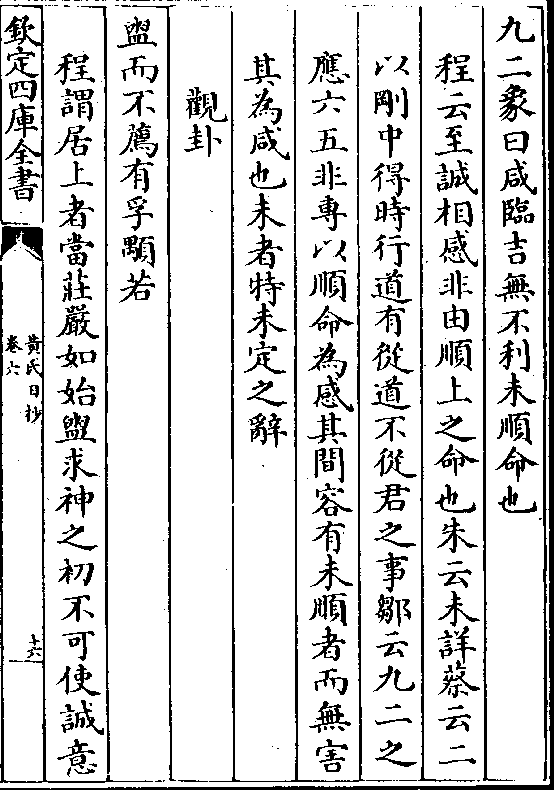 九二象曰咸臨吉無不利未順命也
程云至誠相感非由順上之命也朱云未詳蔡云二
以剛中得時行道有從道不從君之事鄒云九二之
應六五非專以順命為感其間容有未順者而無害
其為咸也未者特未定之辭
觀卦
盥而不薦有孚顒若
程謂居上者當莊嚴如始盥求神之初不可使誠意
欽定四庫全書
黃氏日抄
卷六
十六